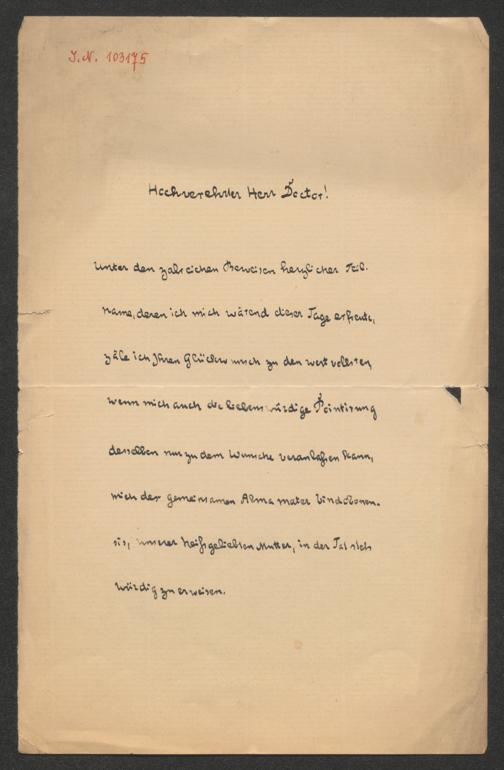 I. N. 103175
Hochverehrter Herr Doctor!
Unter den zalreichen Beweisen herzlicher Teil-
name, deren ich mich wärend dieser Tage erfreute,
zäle ich Ihren Glückwunsch zu den wertvollsten
wenn mich auch die liebenswürdige Pointirung
desselben nur zu dem Wunsche veranlaßen kann,
mich der gemeinsamen Alma mater Vindobonen-
sis, unserer heißgeliebten Mutter, in der Tat stets
würdig zu erweisen.